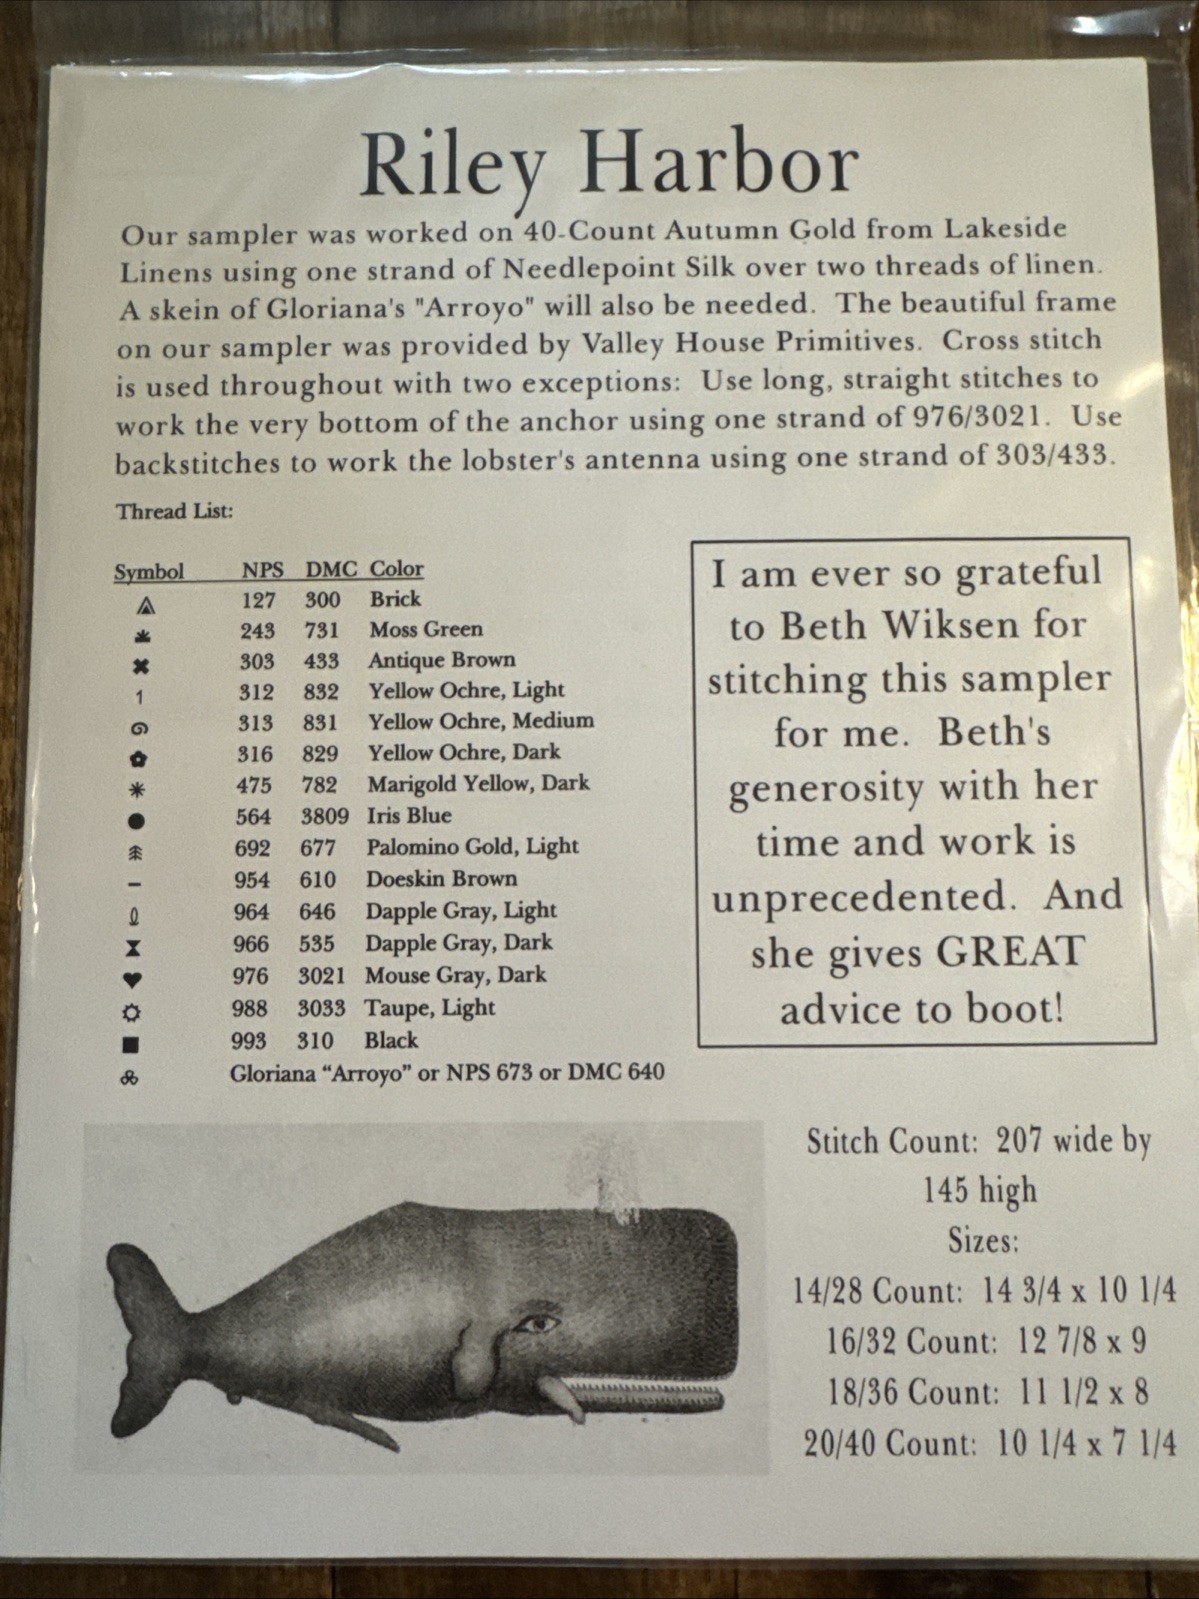 Riley Harbor
Our sampler was worked on 40-Count Autumn Gold from Lakeside
Linens using one strand of Needlepoint Silk over two threads of linen.
A skein of Gloriana's "Arroyo" will also be needed. The beautiful frame
on our sampler was provided by Valley House Primitives. Cross stitch
is used throughout with two exceptions: Use long, straight stitches to
work the very bottom of the anchor using one strand of 976/3021. Use
backstitches to work the lobster's antenna using one strand of 303/433.
Thread List:
Symbol NPS DMC Color
127 300 Brick
243 731 Moss Green
303 433 Antique Brown
312 832 Yellow Ochre, Light
313 831 Yellow Ochre, Medium
316 829 Yellow Ochre, Dark
475 782 Marigold Yellow, Dark
564 3809 Iris Blue
692 677 Palomino Gold, Light
954 610 Doeskin Brown
964 646 Dapple Gray, Light
966 535 Dapple Gray, Dark
976 3021 Mouse Gray, Dark
988 3033 Taupe, Light
993 310 Black
Gloriana “Arroyo” or NPS 673 or DMC 640
I am ever so grateful
to Beth Wiksen for
stitching this sampler
for me. Beth's
generosity with her
time and work is
unprecedented. And
she gives GREAT
advice to boot!
Stitch Count: 207 wide by
145 high
Sizes:
14/28 Count: 14 3/4 x 10 1/4
16/32 Count: 12 7/8 x 9
18/36 Count: 11 1/2 x 8
20/40 Count: 10 1/4 x 7 1/4